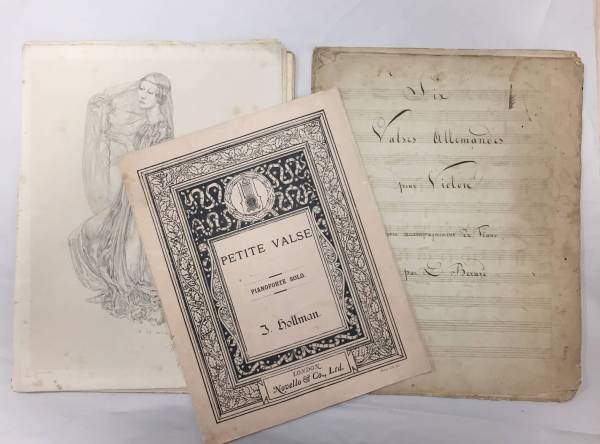 PETITE VALSE
PIANOFORTE SOLO.
J. Hollman.
LONDON
Novello & Co., Ltd.
Six
Valses Allemandes
pour Violon
accompagnement de Piano
par L.